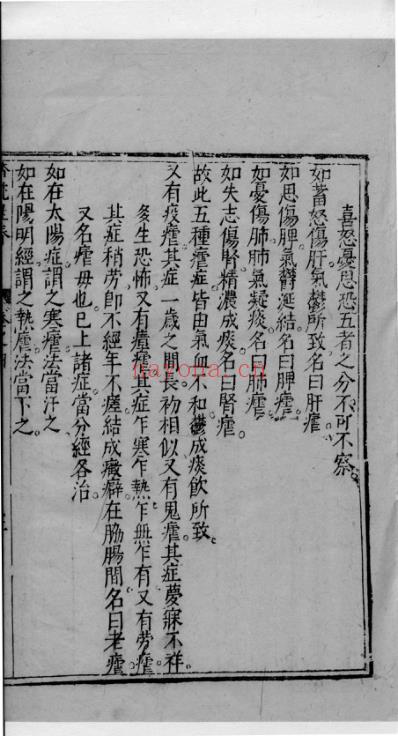 喜怒憂思恐五者之分不可不察
如蓄怒傷肝氣鬱所致名曰肝瘧
如思傷脾氣鬱涎結名曰脾瘧
如憂傷肺肺氣凝痰名曰肺瘧
如失志傷腎精濃成痰名曰腎瘧
故此五種瘧症皆由氣血不和鬱成痰飲所致
又有疫瘧其症一歲之間長幼相似又有鬼瘧其症夢寐不祥
多生恐怖又有瘴瘧其症乍寒乍熱乍無乍有又有劳瘧
其症稍劳即不經年不瘥結成癥癖在脇腸間名曰老瘧
又名瘧母也已上諸症當分經各治
如在太陽症謂之寒瘧法當汗之
如在陽明經謂之熱瘧法當下之
nayona.cn